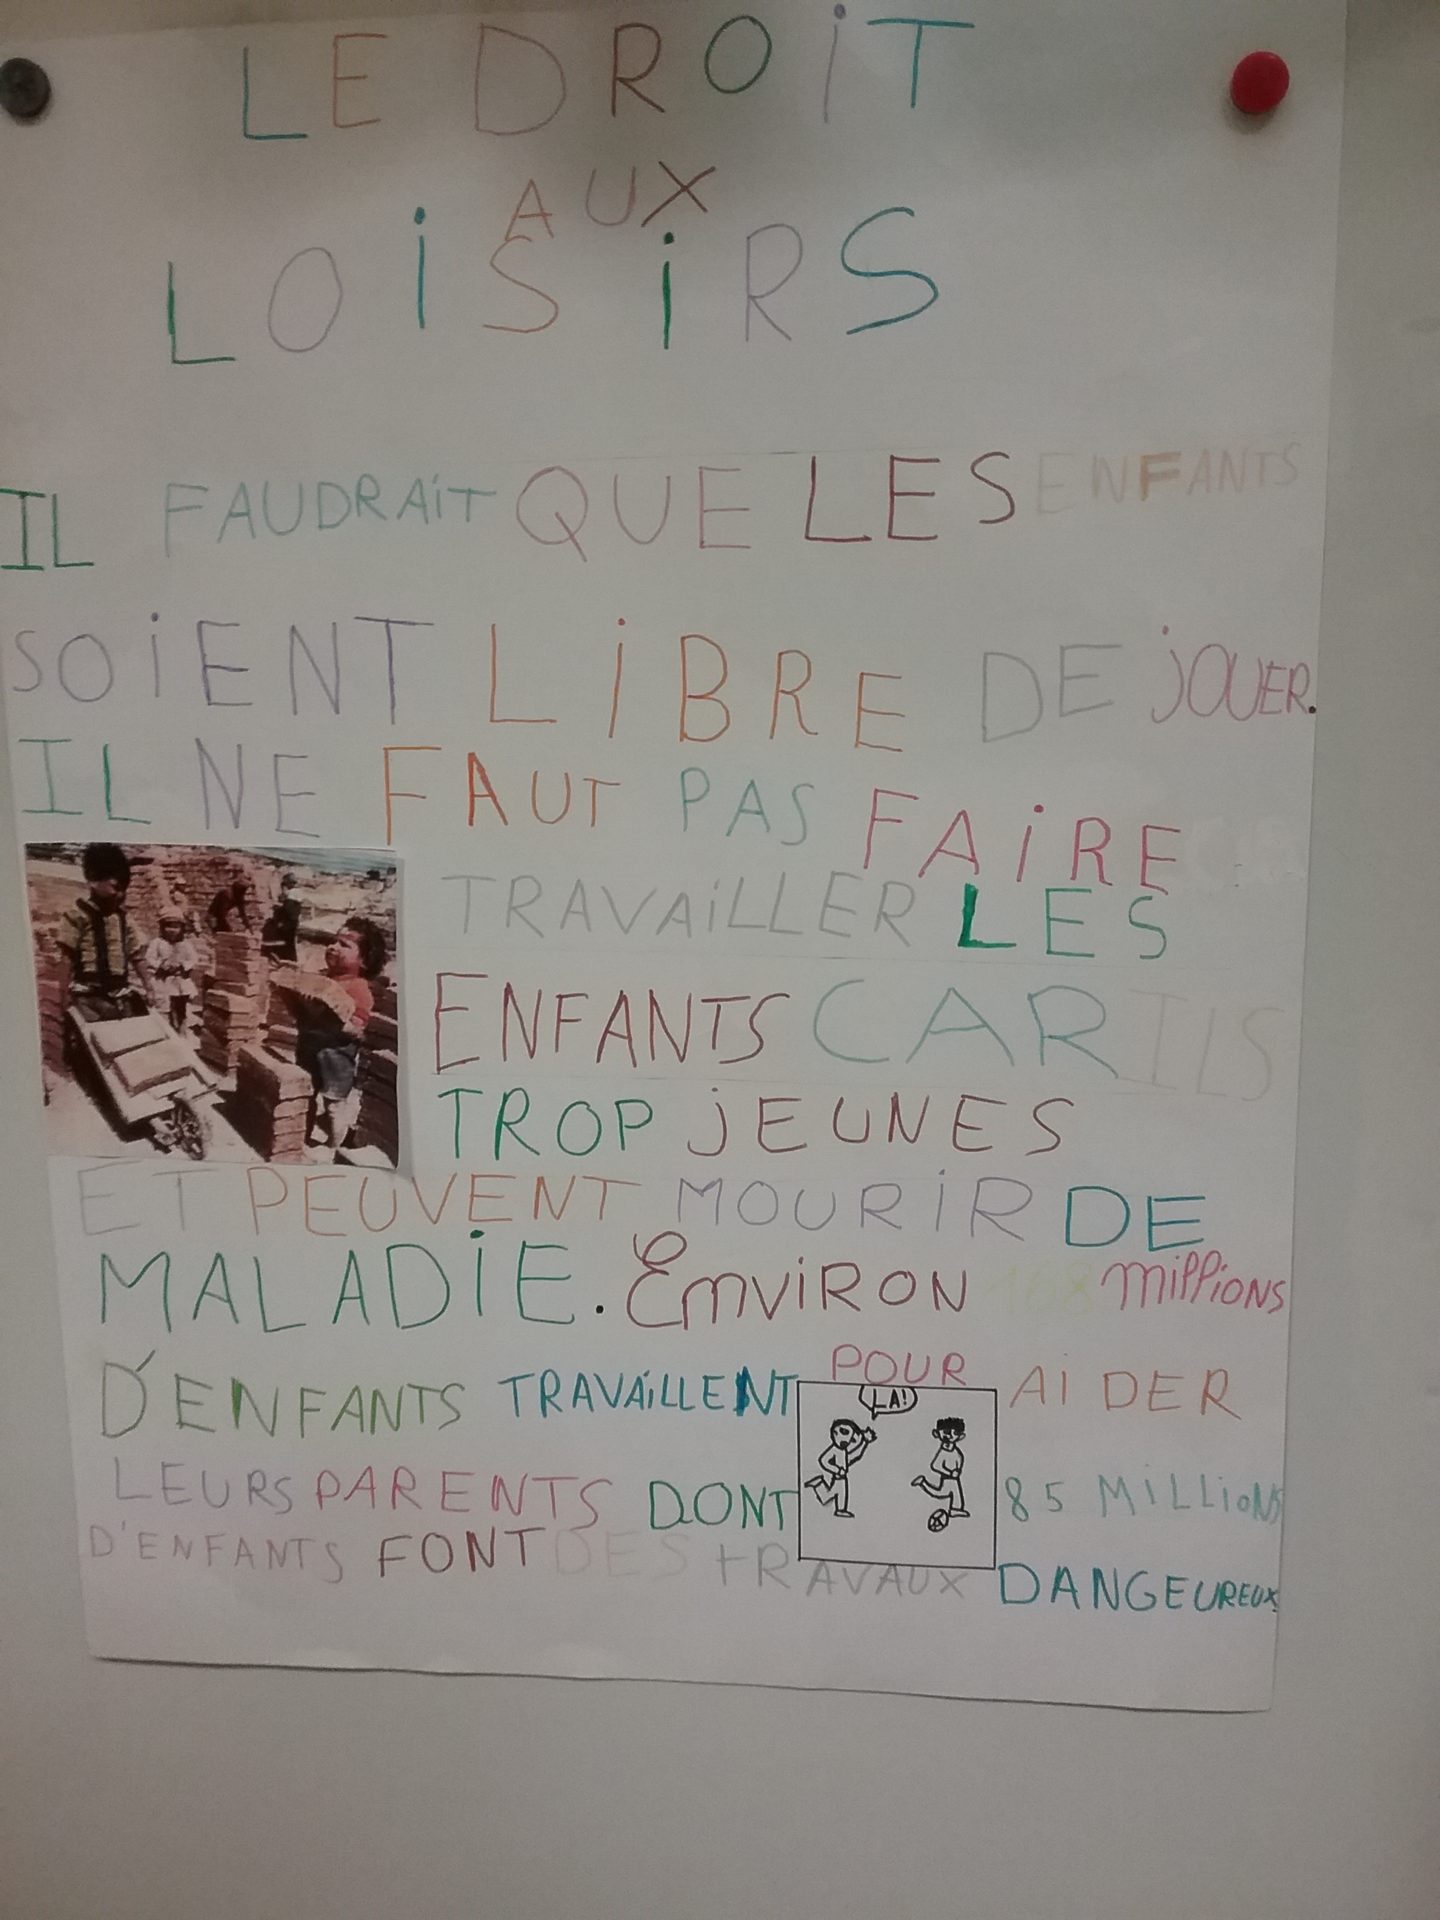 LE DROiT
AUX
LOiSiRS
IL FAUDRAiT QUE LES ENFANTS
SOiENT LiBRE DE jOUER.
IL NE FAUT PAS FAiRE
TRAVAiLLER LES
ENFANTS CAR ILS
TROP jEUNES
ET PEUVENT MOURiR DE
MALADiE. EnviRON 168 millions
D'ENFANTS TRAVAiLLENT POUR AiDER
LA!
LEURS PARENTS DONT 85 MiLLiONS
D'ENFANTS FONT DES tRAVAUX DANGEUREUX.